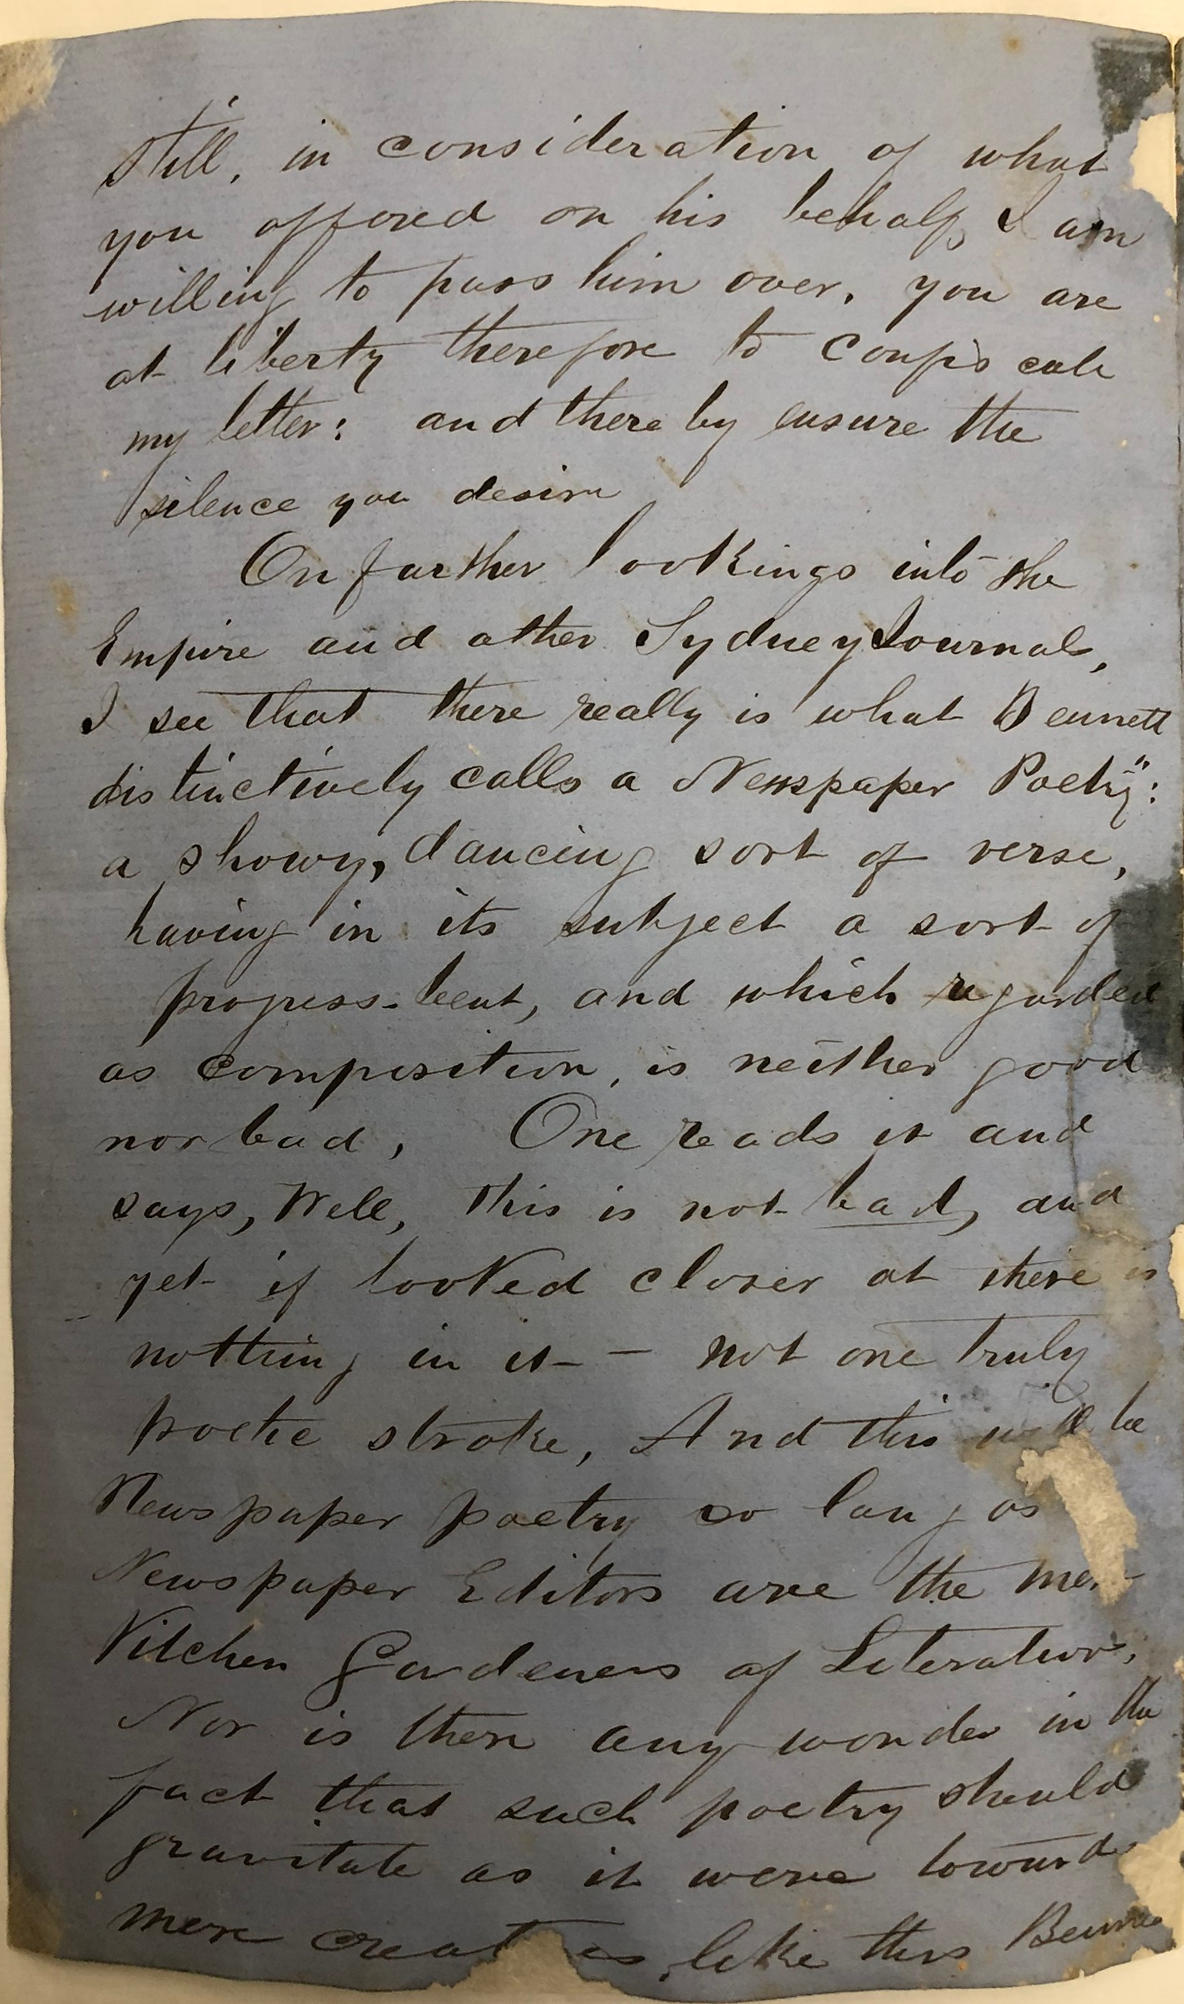 still, in consideration of what
you offored on his behalf, I am
willing to pass him over. you are
at liberty therefore to confis cate
my letter: and there by ensure the
silence you desire
On further lookings into the
Empire and other Sydney Journals,
I see that there really is what Bennett
distinctively calls a Newspaper Poetry":
a showy, dancing sort of verse,
having in its subject a sort of
progress-bent, and which regarded
as composition, is neither good
nor bad, One reads it and
says, Well, this is not bad, and
yet if looked closer at there is
nothing in it - not one truly
poetic stroke, And this will be
Newspaper poetry so long as
Newspaper Editors are the
Kitchen Gardeners of Literature,
Nor is there any wonder in the
fact that such poetry should
gravitate as it were towards
mere creat es like this